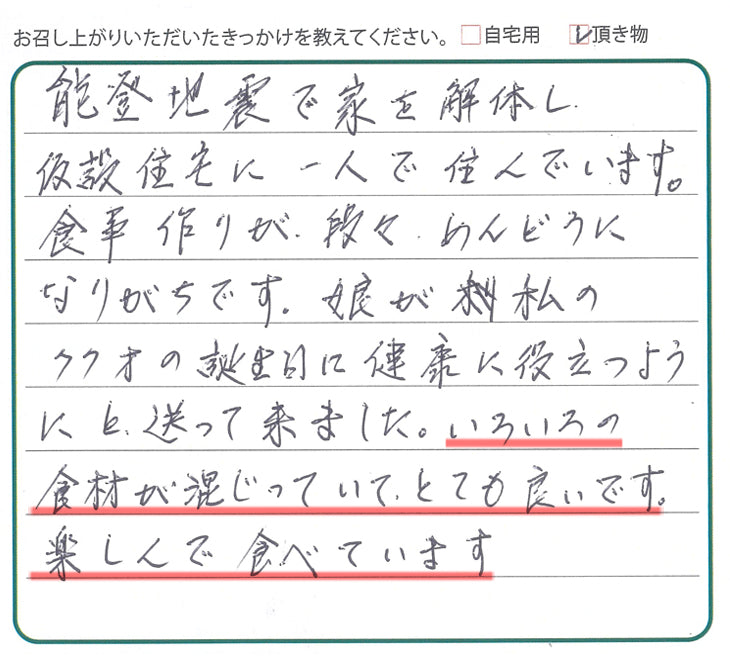 お召し上がりいただいたきっかけを教えてください。 □自宅用 ☑頂き物
能登地震で家を解体し
仮設住宅に一人で住んでいます。
食事作りが、段々、めんどうに
なりがちです。娘が 私の
77才の誕生日に健康に役立つよう
にと、送って来ました。いろいろの
食材が混じっていて、とても良いです。
楽しんで食べています